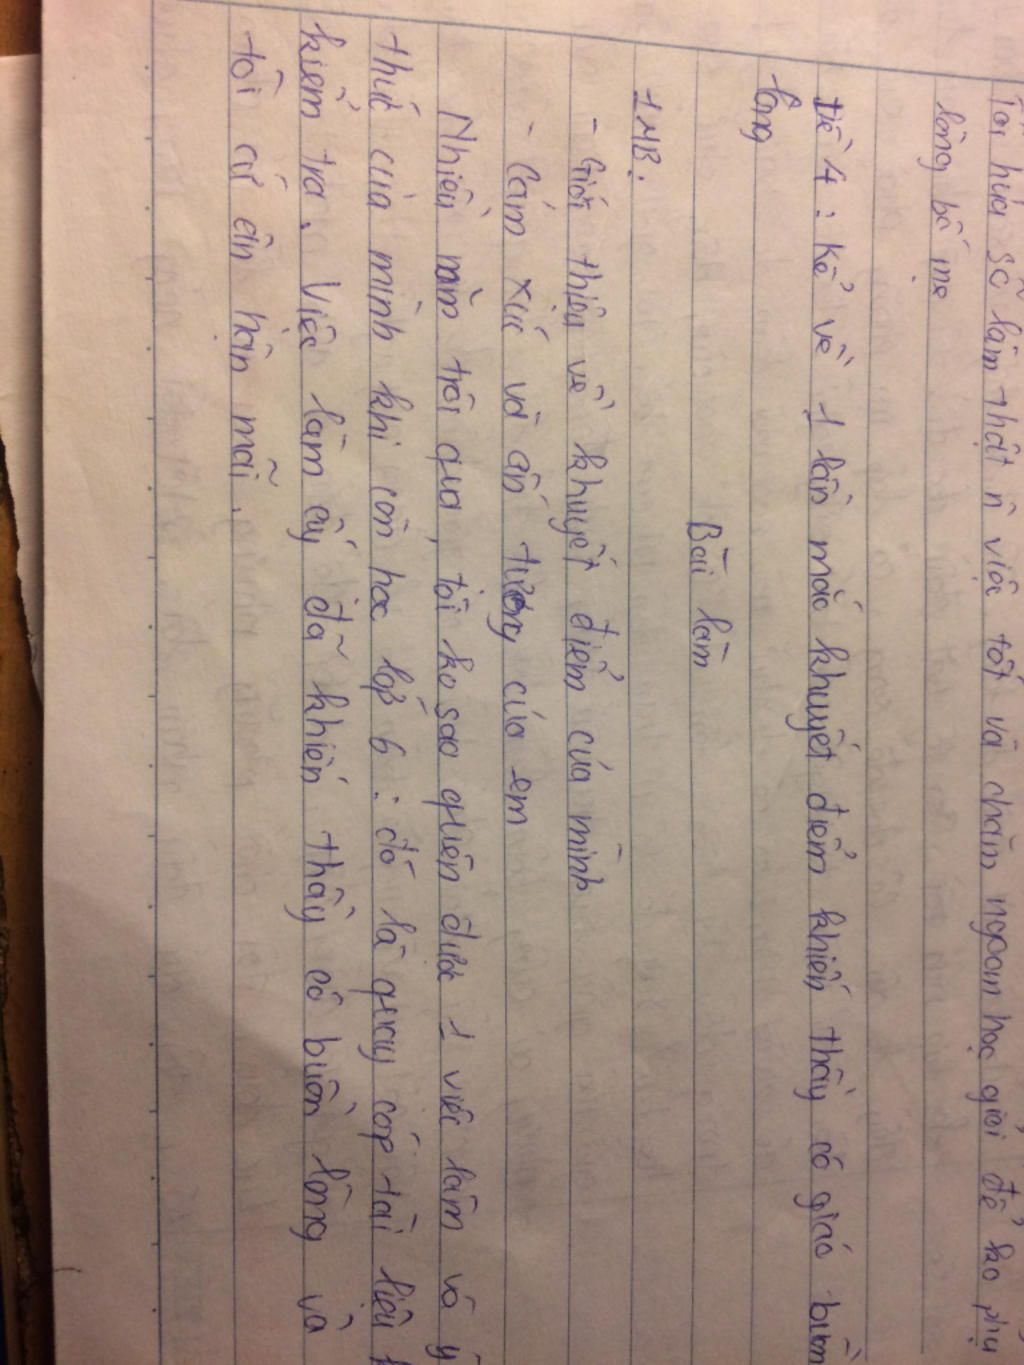 Tôi hứa sẽ làm thật n việc tốt và chăm ngoan học giỏi để ko phụ
lòng bố mẹ
Đề 4 : Kể về 1 lần mắc khuyết điểm khiến thầy cô giáo buồn
lòng
Bài làm
1 MB.
- Giới thiệu về khuyết điểm của mình
- Cảm xúc và ấn tượng của em
Nhiều năm trôi qua, tôi ko sao quên được 1 việc làm vô ý
thức của mình khi còn học lớp 6 : đó là quay cóp tài liệu
kiểm tra. Việc làm ấy đã khiến thầy cô buồn lòng và
tôi cứ ân hận mãi.